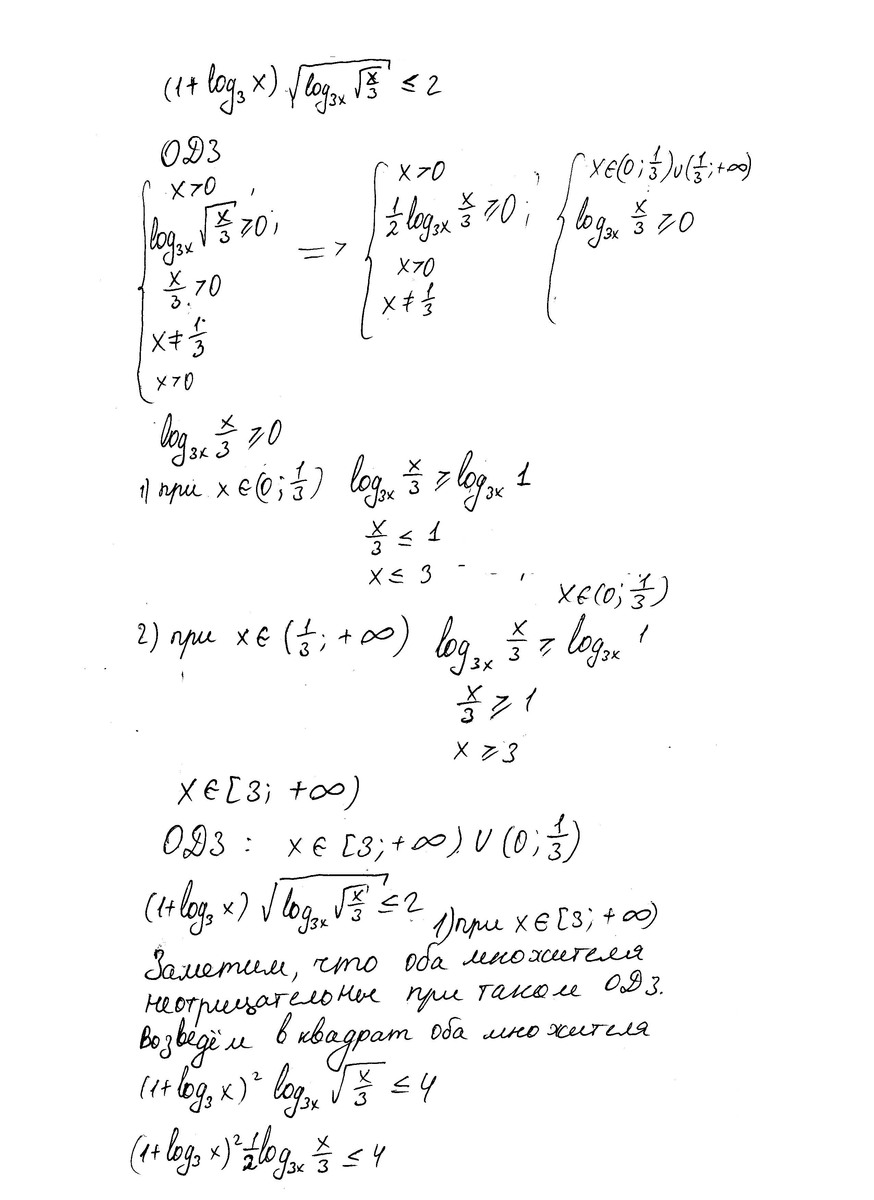 (1+ log₃ x) √(log₃ₓ √(x/3)) ≤ 2
ОДЗ
{ x>0, log₃ₓ √(x/3) ≥0; x/3 >0 x≠ 1/3 x>0 => { x>0 1/2 log₃ₓ x/3 ≥0; x>0 x≠ 1/3 ; { x∈(0; 1/3)∪(1/3; +∞) log₃ₓ x/3 ≥0
log₃ₓ x/3 ≥0
1) при x∈(0; 1/3) log₃ₓ x/3 ≥ log₃ₓ 1
x/3 ≤ 1
x ≤ 3
x∈(0; 1/3)
2) при x∈ (1/3; +∞) log₃ₓ x/3 ≥ log₃ₓ 1
x/3 ≥ 1
x ≥ 3
x∈[3; +∞)
ОДЗ : x∈ [3; +∞) ∪ (0; 1/3)
(1+log₃ x) √(log₃ₓ √(x/3)) ≤ 2 1) при x∈[3; +∞)
Заметим, что оба множителя
неотрицательные при таком ОДЗ.
Возведём в квадрат оба множителя
(1+log₃ x)² log₃ₓ √(x/3) ≤ 4
(1+log₃ x)² 1/2 log₃ₓ x/3 ≤ 4